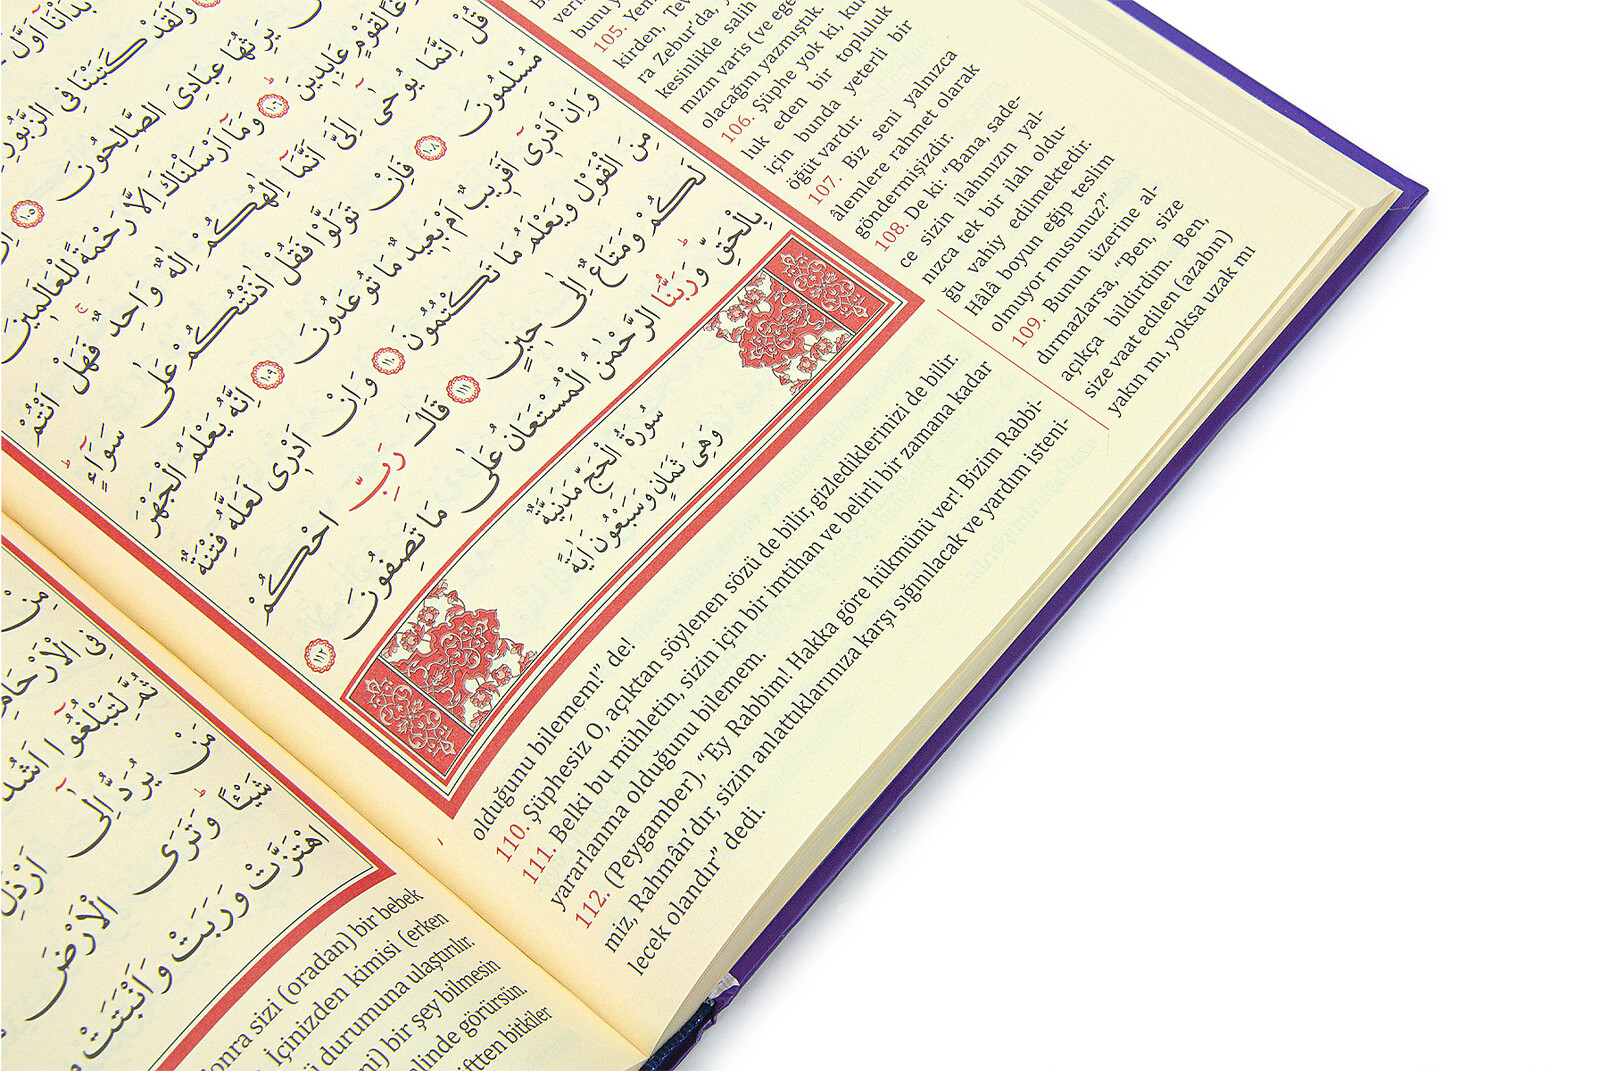 بَدَأْنَٓا اَوَّلَ
وَلَقَدْ كَتَبْنَا فِي الزَّبُورِ
يَرِثُهَا عِبَادِيَ الصَّالِحُونَ ١٠٥
لِقَوْمٍ عَابِدِينَ ١٠٦ وَمَٓا اَرْسَلْنَاكَ اِلَّا رَحْمَةً لِلْعَالَمِينَ
قُلْ اِنَّمَا يُوحٰٓى اِلَيَّ اَنَّمَٓا اِلٰهُكُمْ اِلٰهٌ وَاحِدٌ فَهَلْ اَنْتُمْ
مُسْلِمُونَ ١٠٨ فَاِنْ تَوَلَّوْا فَقُلْ اٰذَنْتُكُمْ عَلٰى سَوَٓاءٍ
وَاِنْ اَدْرِٓي اَقَرِيبٌ اَمْ بَعِيدٌ مَا تُوعَدُونَ ١٠٩ اِنَّهُ يَعْلَمُ الْجَهْرَ
مِنَ الْقَوْلِ وَيَعْلَمُ مَا تَكْتُمُونَ ١١٠ وَاِنْ اَدْرِي لَعَلَّهُ فِتْنَةٌ
لَكُمْ وَمَتَاعٌ اِلٰى حِينٍ ١١١ قَالَ رَبِّ احْكُمْ
بِالْحَقِّ وَرَبُّنَا الرَّحْمٰنُ الْمُسْتَعَانُ عَلٰى مَا تَصِفُونَ ١١٢
سُورَةُ الْحَجِّ مَدَنِيَّةٌ
وَهِيَ ثَمَانٍ وَسَبْعُونَ اٰيَةً
bunu
105.
kirden, Tev
ra Zebur’da,
kesinlikle salih
mızın varis (ve ege
olacağını yazmıştık.
106. Şüphe yok ki, kul
luk eden bir topluluk
için bunda yeterli bir
öğüt vardır.
107. Biz seni yalnızca
âlemlere rahmet olarak
göndermişizdir.
108. De ki: “Bana, sade-
ce sizin ilahınızın yal-
nızca tek bir ilah oldu-
ğu vahiy edilmektedir.
Hâlâ boyun eğip teslim
olmuyor musunuz?”
109. Bunun üzerine al-
dırmazlarsa, “Ben, size
açıkça bildirdim. Ben,
size vaat edilen (azabın)
yakın mı, yoksa uzak mı
olduğunu bilemem!” de!
110. Şüphesiz O, açıktan söylenen sözü de bilir, gizlediklerinizi de bilir.
111. Belki bu mühletin, sizin için bir imtihan ve belirli bir zamana kadar
yararlanma olduğunu bilemem.
112. (Peygamber), “Ey Rabbim! Hakka göre hükmünü ver! Bizim Rabbi-
miz, Rahmân’dır, sizin anlattıklarınıza karşı sığınılacak ve yardım isteni-
lecek olandır” dedi.
مِنْ
فِي الْاَرْحَامِ
ثُمَّ لِتَبْلُغُٓوا اَشُدَّ
مَنْ يُرَدُّ اِلٰٓى اَرْذَلِ
شَيْـًٔا وَتَرَى الْاَرْضَ
اهْتَزَّتْ وَرَبَتْ وَاَنْبَتَتْ
sonra sizi (oradan) bir bebek
İçinizden kimisi (erken
durumuna ulaştırılır.
bir şey bilmesin
halinde görürsün.
çiftten bitkiler